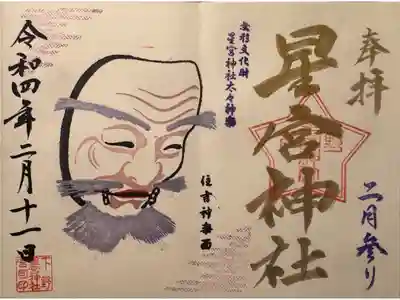 奉拝
星宮神社
二月参り
無形文化財
星宮神社太々神楽
住吉神楽面
令和四年二月十一日